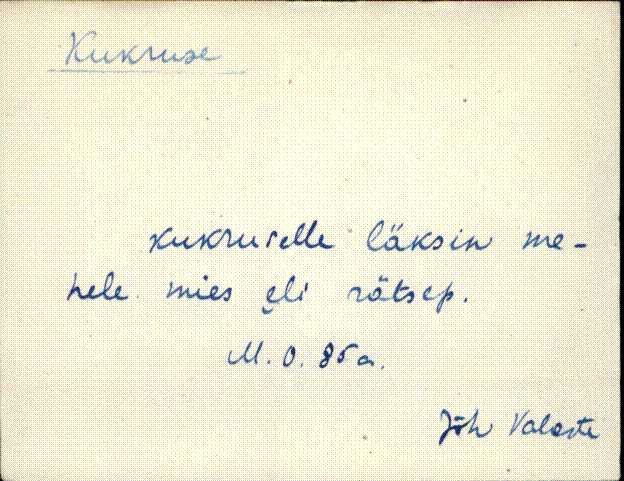 Kukruse
Kukruselle läksin me-
hele mies ęli rätsep.
M. O. 85 a.
Jõh Valaste